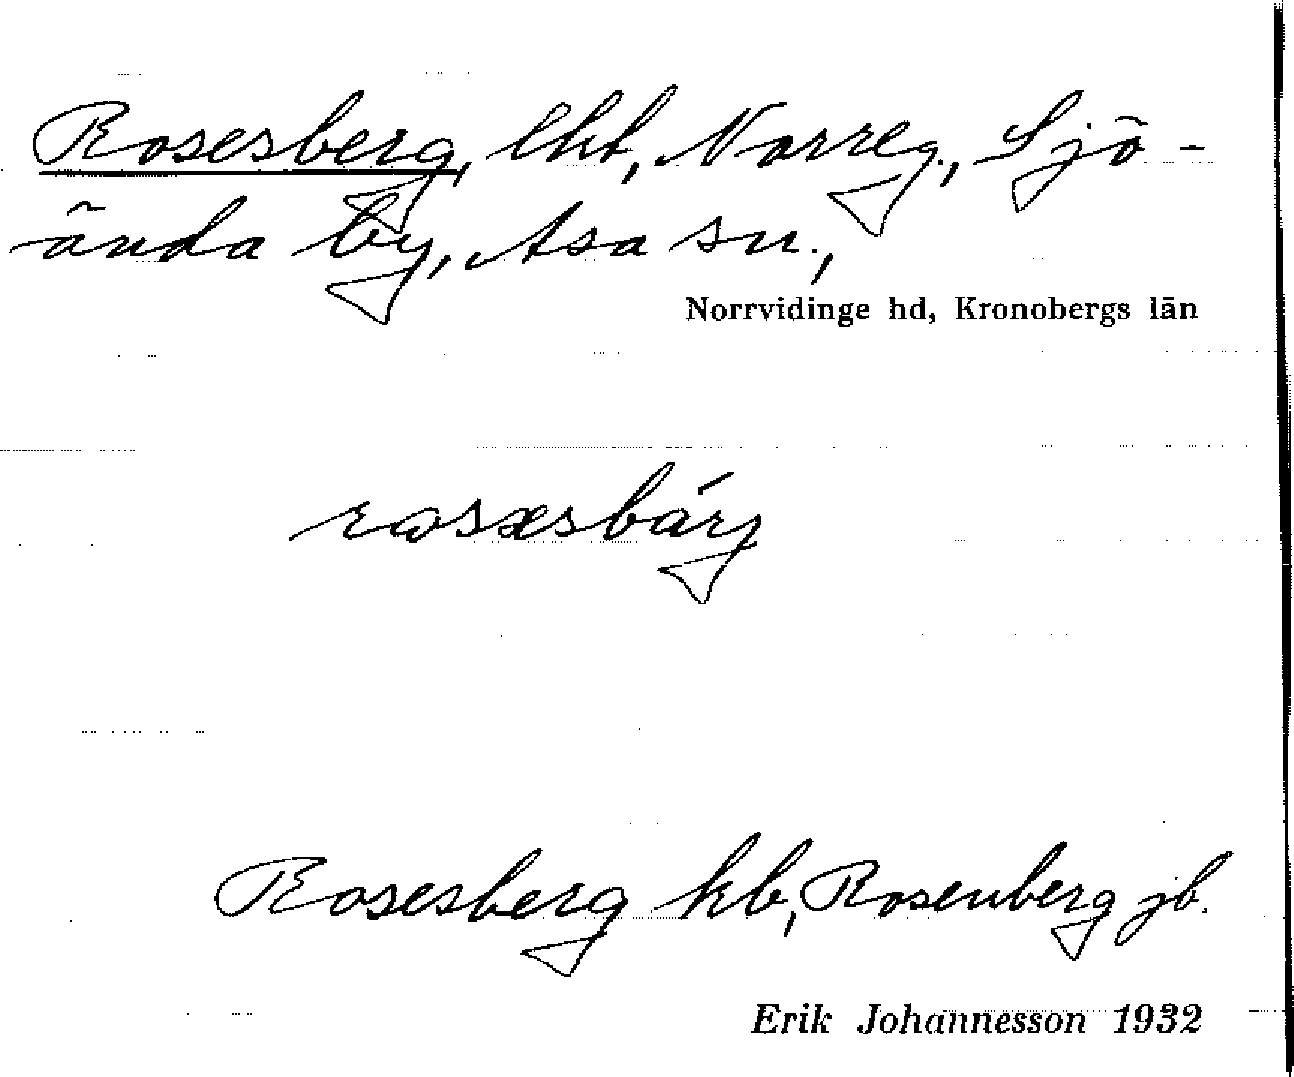 Rosesberg, lht, Norreg., Sjö-
ända by, Asa sn.,
Norrvidinge hd, Kronobergs län
rosæsbárj
Rosesberg kb, Rosenberg jb.
Erik Johannesson 1932